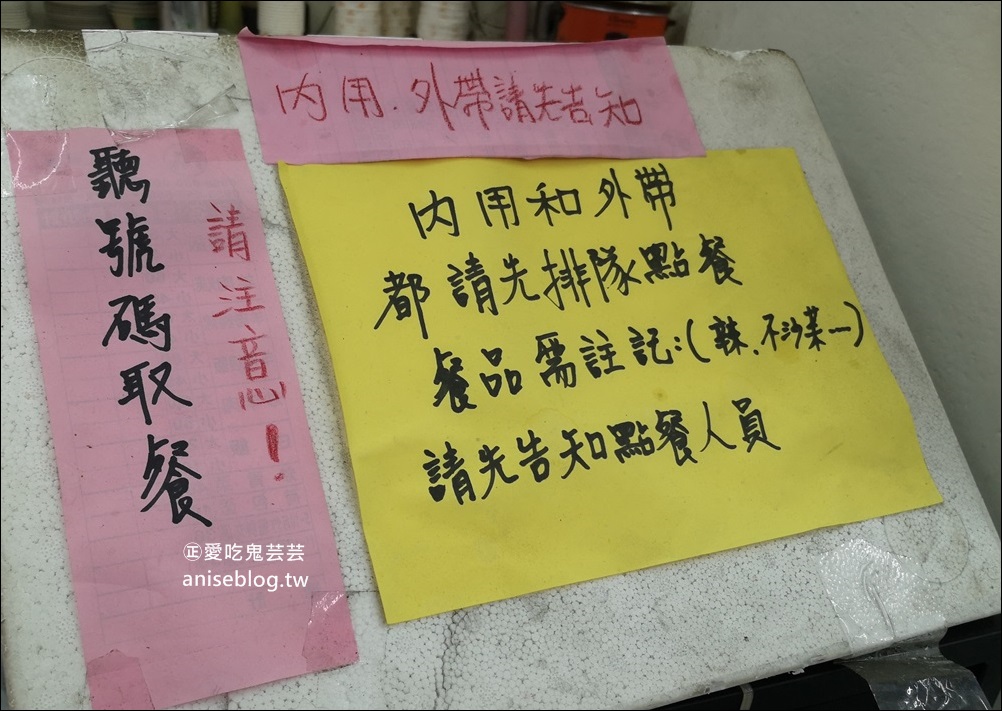 內用.外帶請先告知
聽號碼取餐
請注意!
內用和外帶
都請先排隊點餐
餐品需註記:(辣、不沙茶…)
請先告知點餐人員
㊣愛吃鬼芸芸
aniseblog.tw